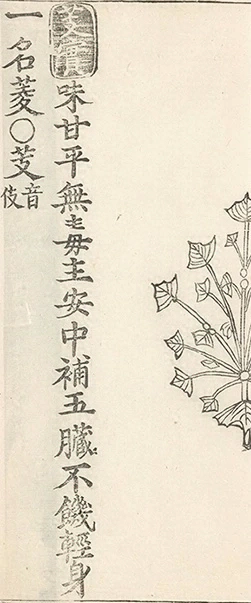 芰實味甘平無毒主安中補五臟不饑輕身
一名菱○芰音伎